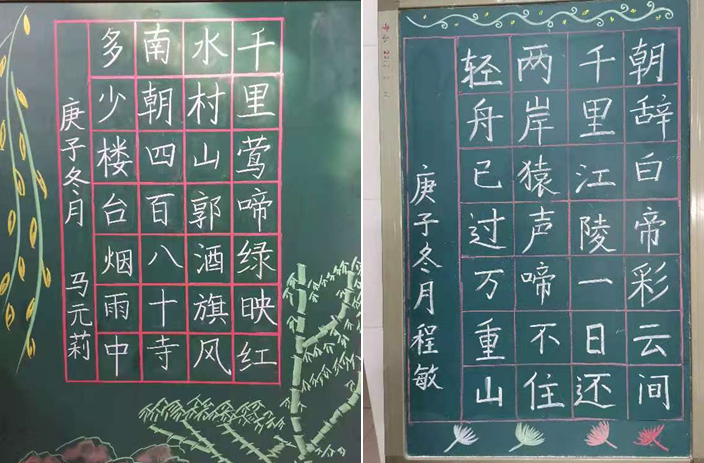 千里莺啼绿映红
水村山郭酒旗风
南朝四百八十寺
多少楼台烟雨中
庚子冬月 马元莉
朝辞白帝彩云间
千里江陵一日还
两岸猿声啼不住
轻舟已过万重山
庚子冬月程敏